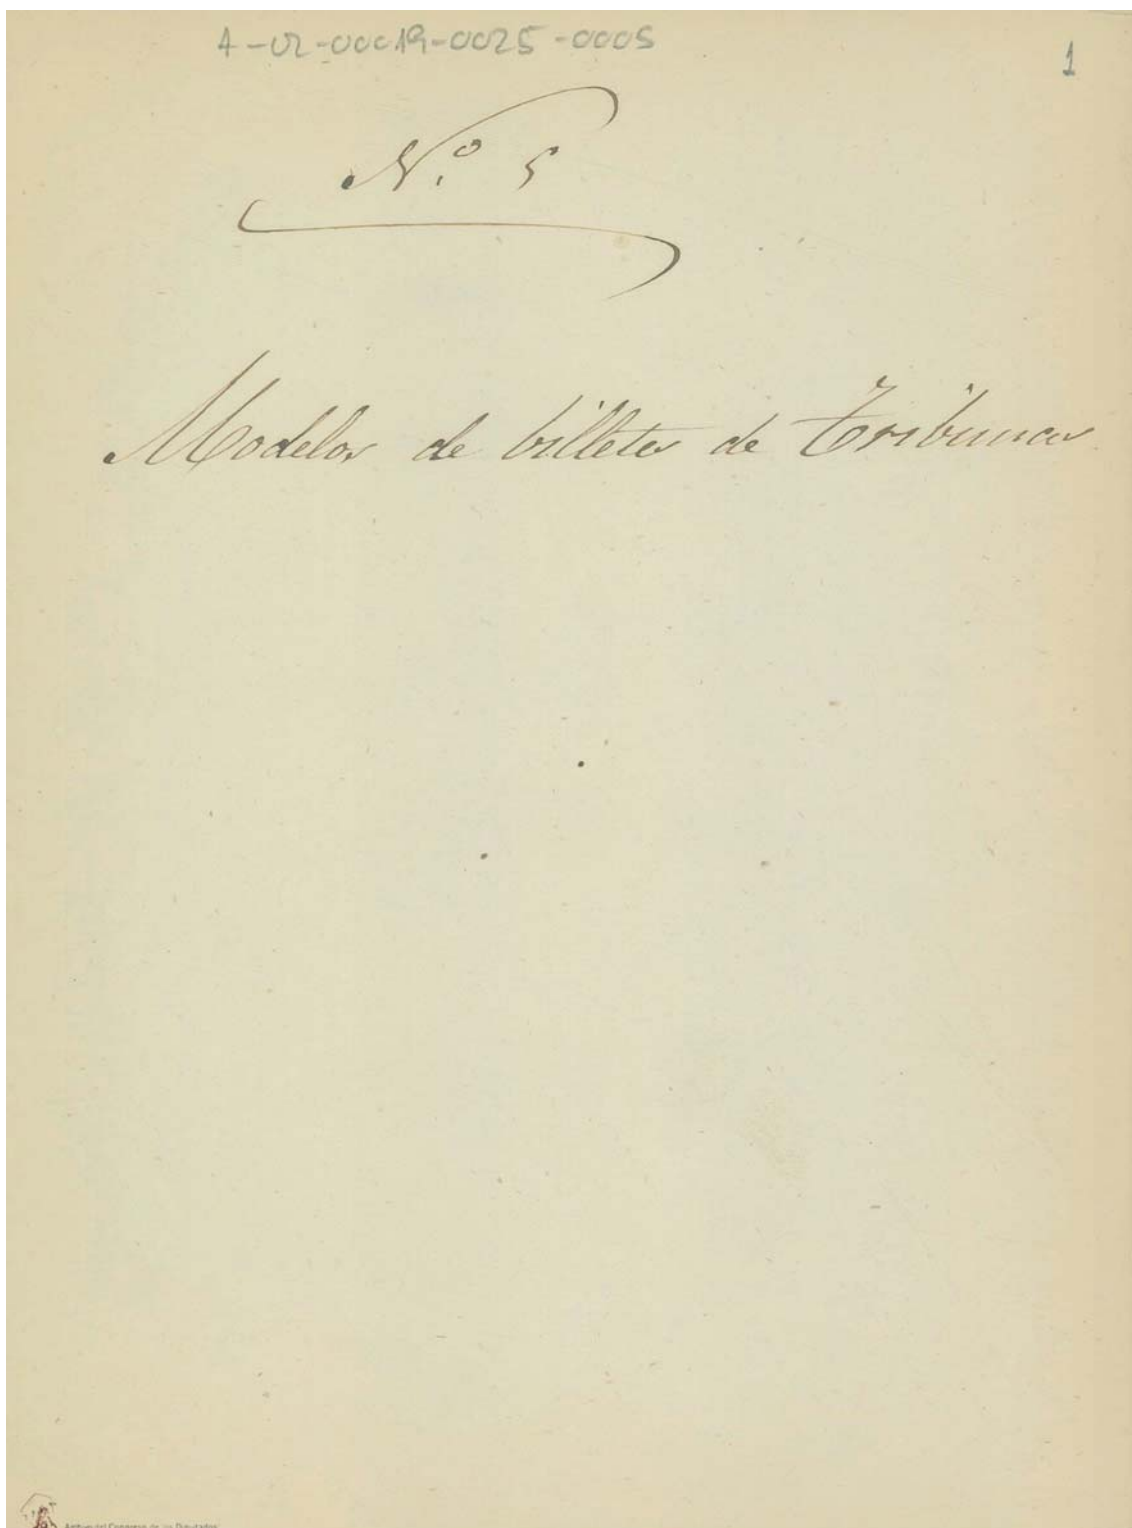 A-02-00019-0025-0005
1
N.º 5
Modelos de billetes de Tribunas
Archivo del Congreso de los Diputados